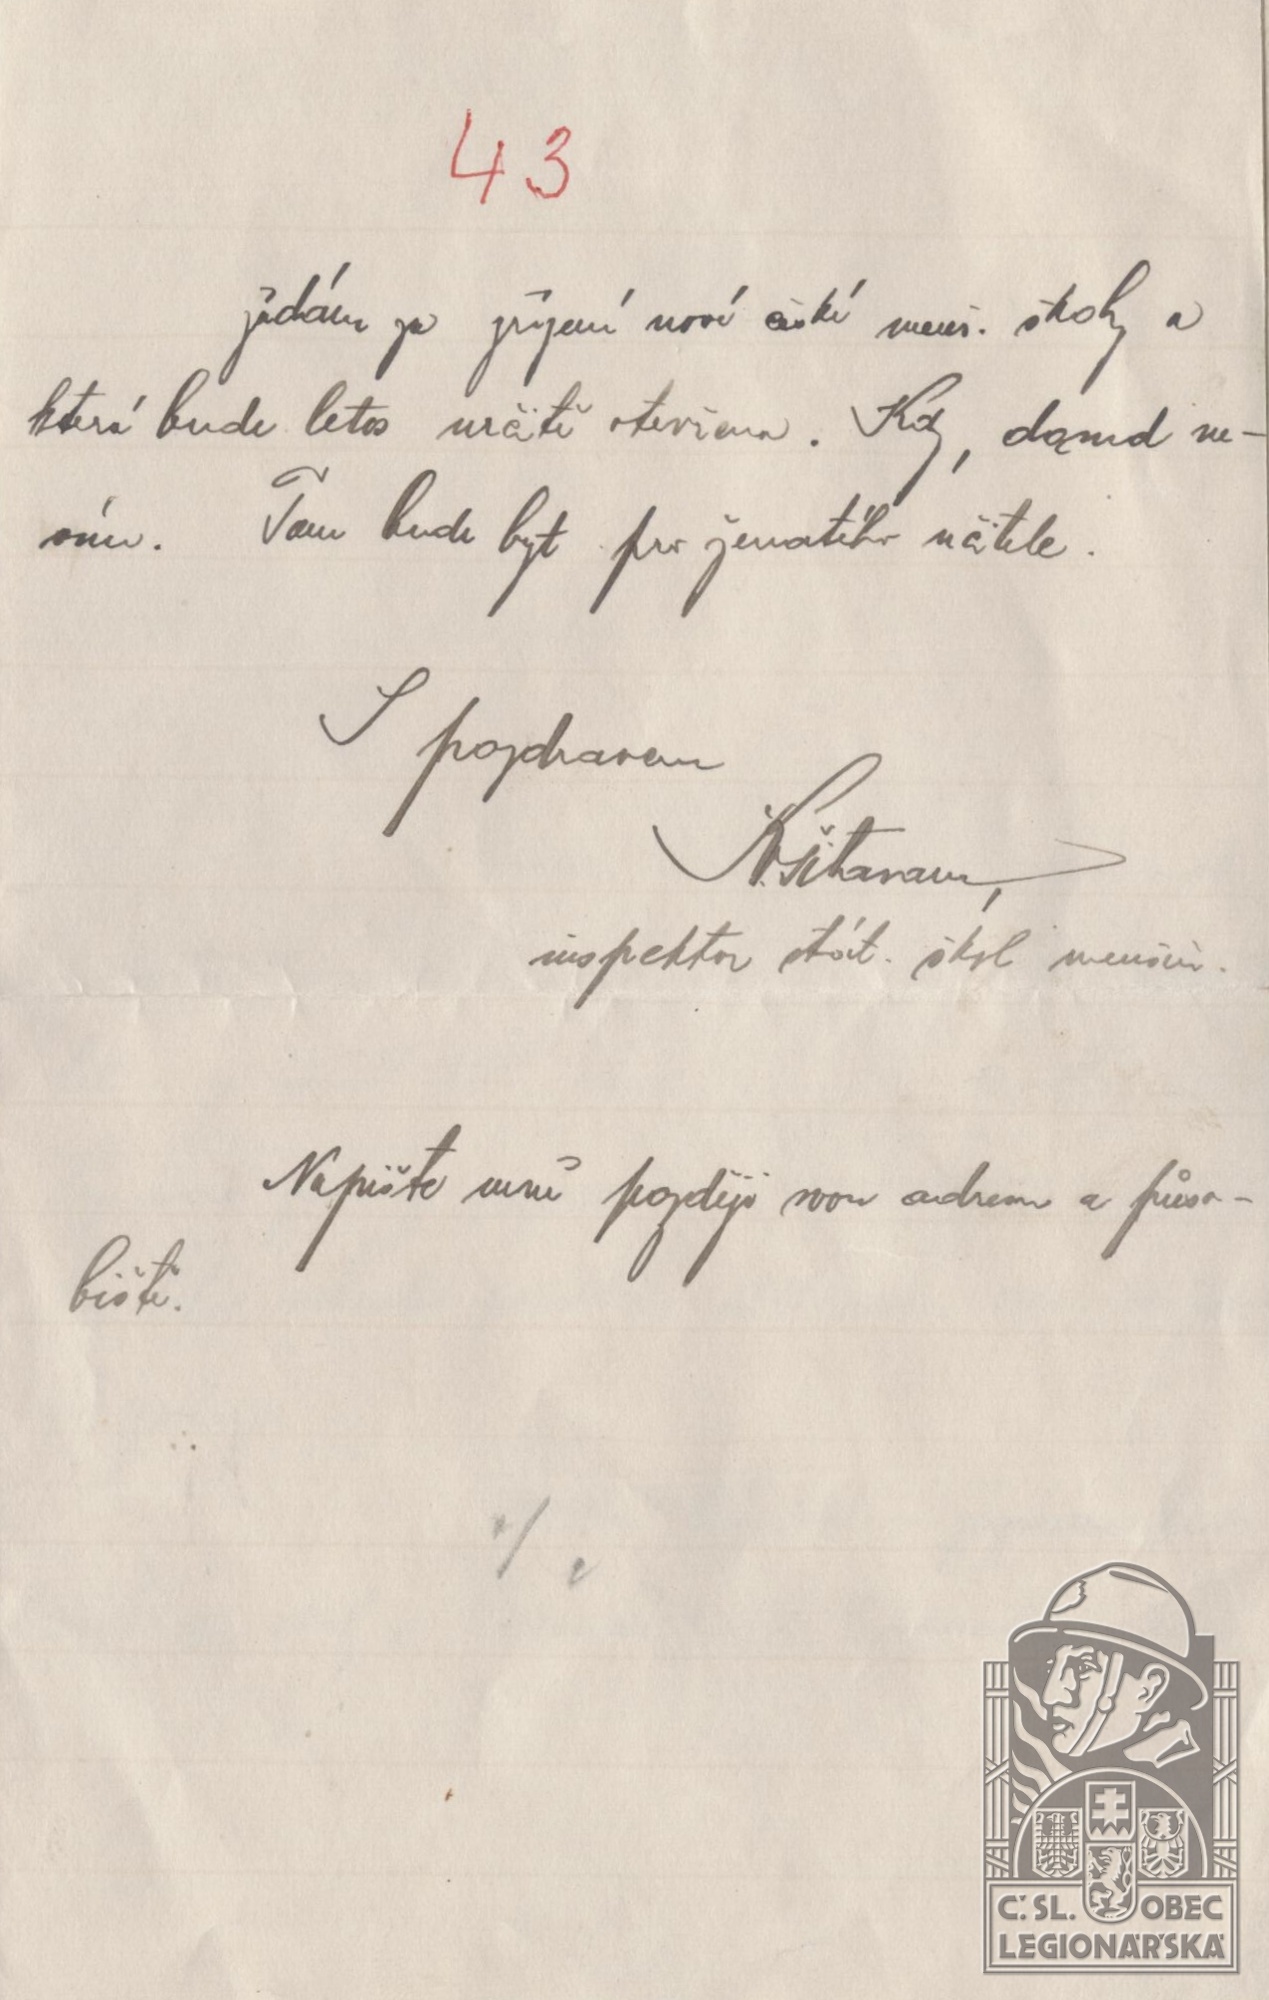 43
žádám za zřízení nové české menš. školy a
která bude letos určitě otevřena. Kdy, dosud ne-
vím. Tam bude byt pro ženatého učitele.
S pozdravem
inspektor stát. škol menšin.
Napište mně později svou adresu a půso-
biště.
Č. SL. OBEC
LEGIONÁŘSKÁ